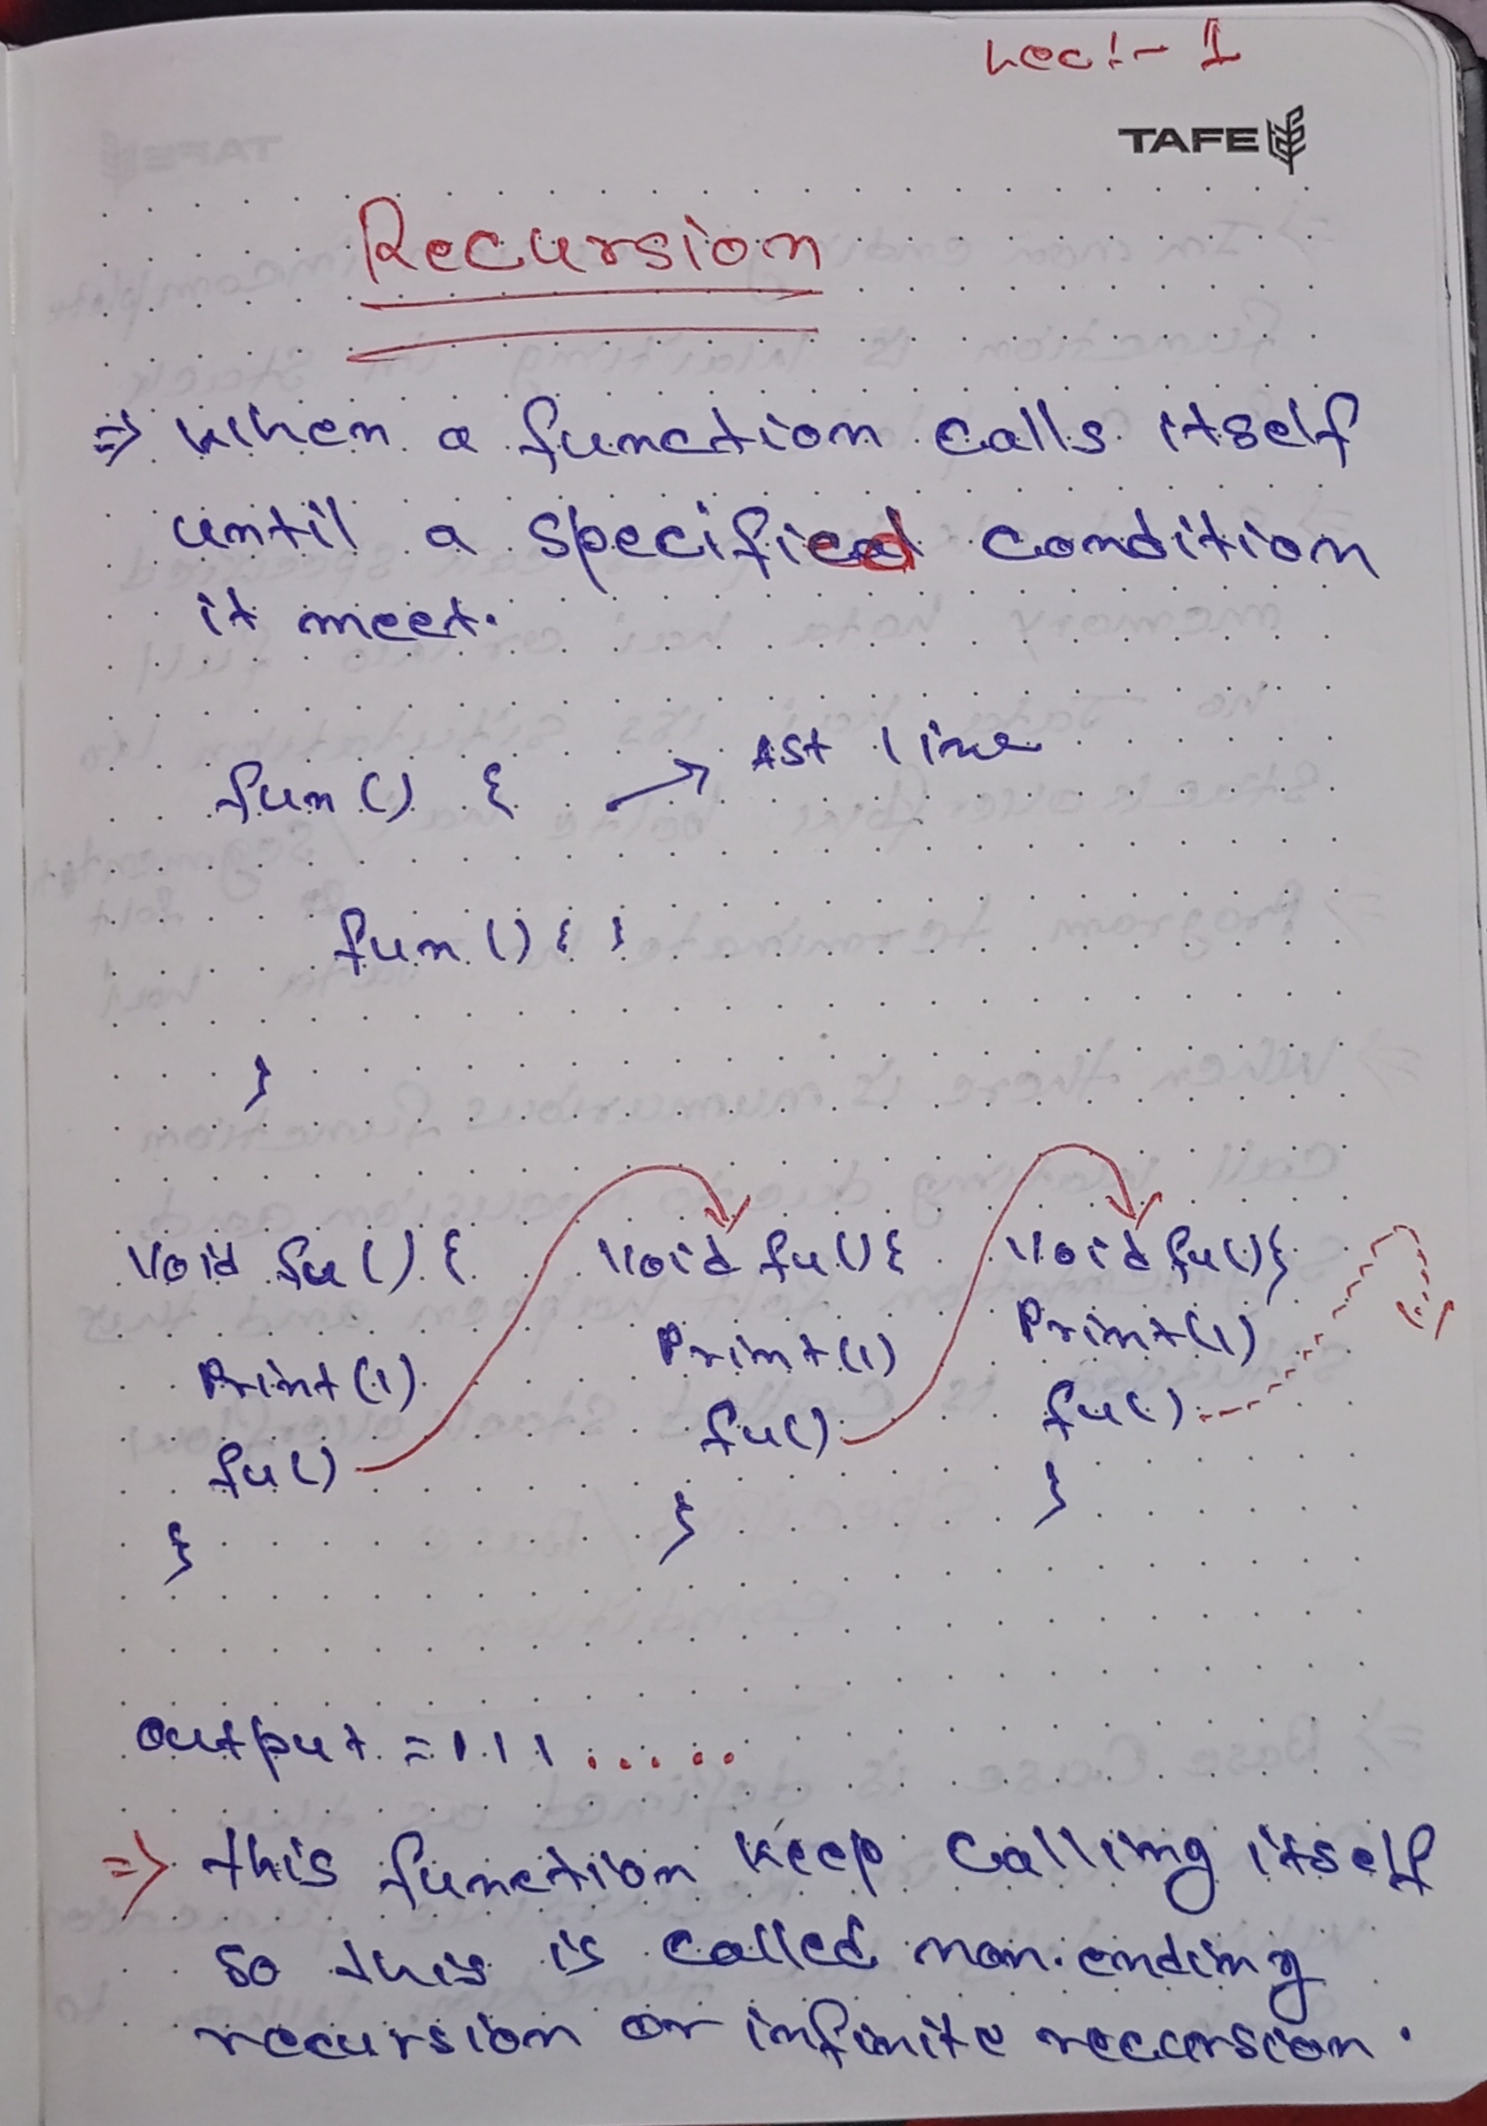 Lec:- 1
TAFE
Recursion
=> When a function calls itself
until a specified condition
it meet.
fun() { → 1st line
fun() { }
}
Void fu() { Void fu() { Void fu() {
Print(1) Print(1) Print(1)
fu() fu() fu()
} } }
output = 111 .....
=> this function keep calling itself
so this is called non-ending
recursion or infinite recursion.